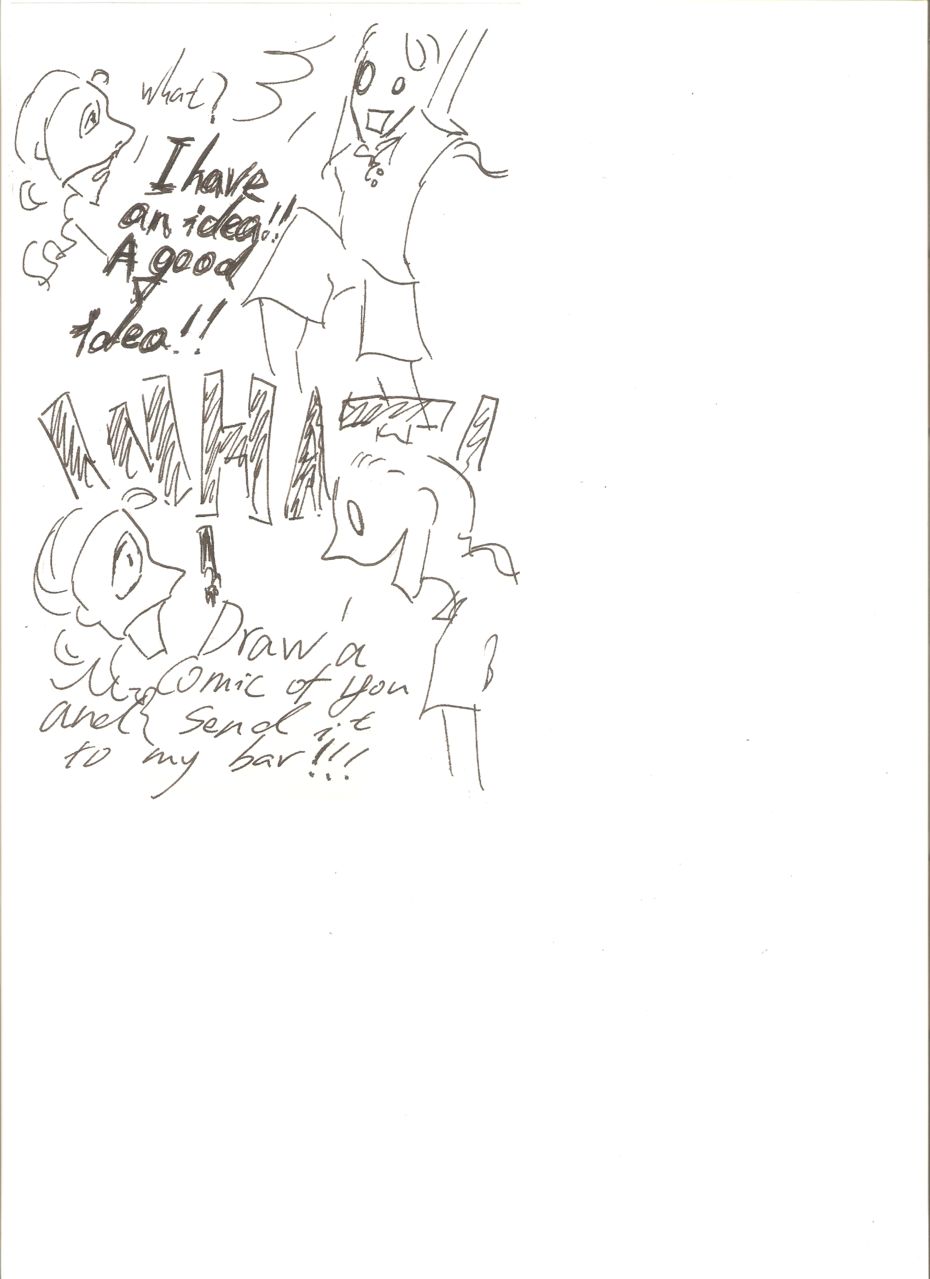 what?
I have
an idea!!
A good
Idea!!
WHAT!
Draw a
Comic of you
and send it
to my bar!!!